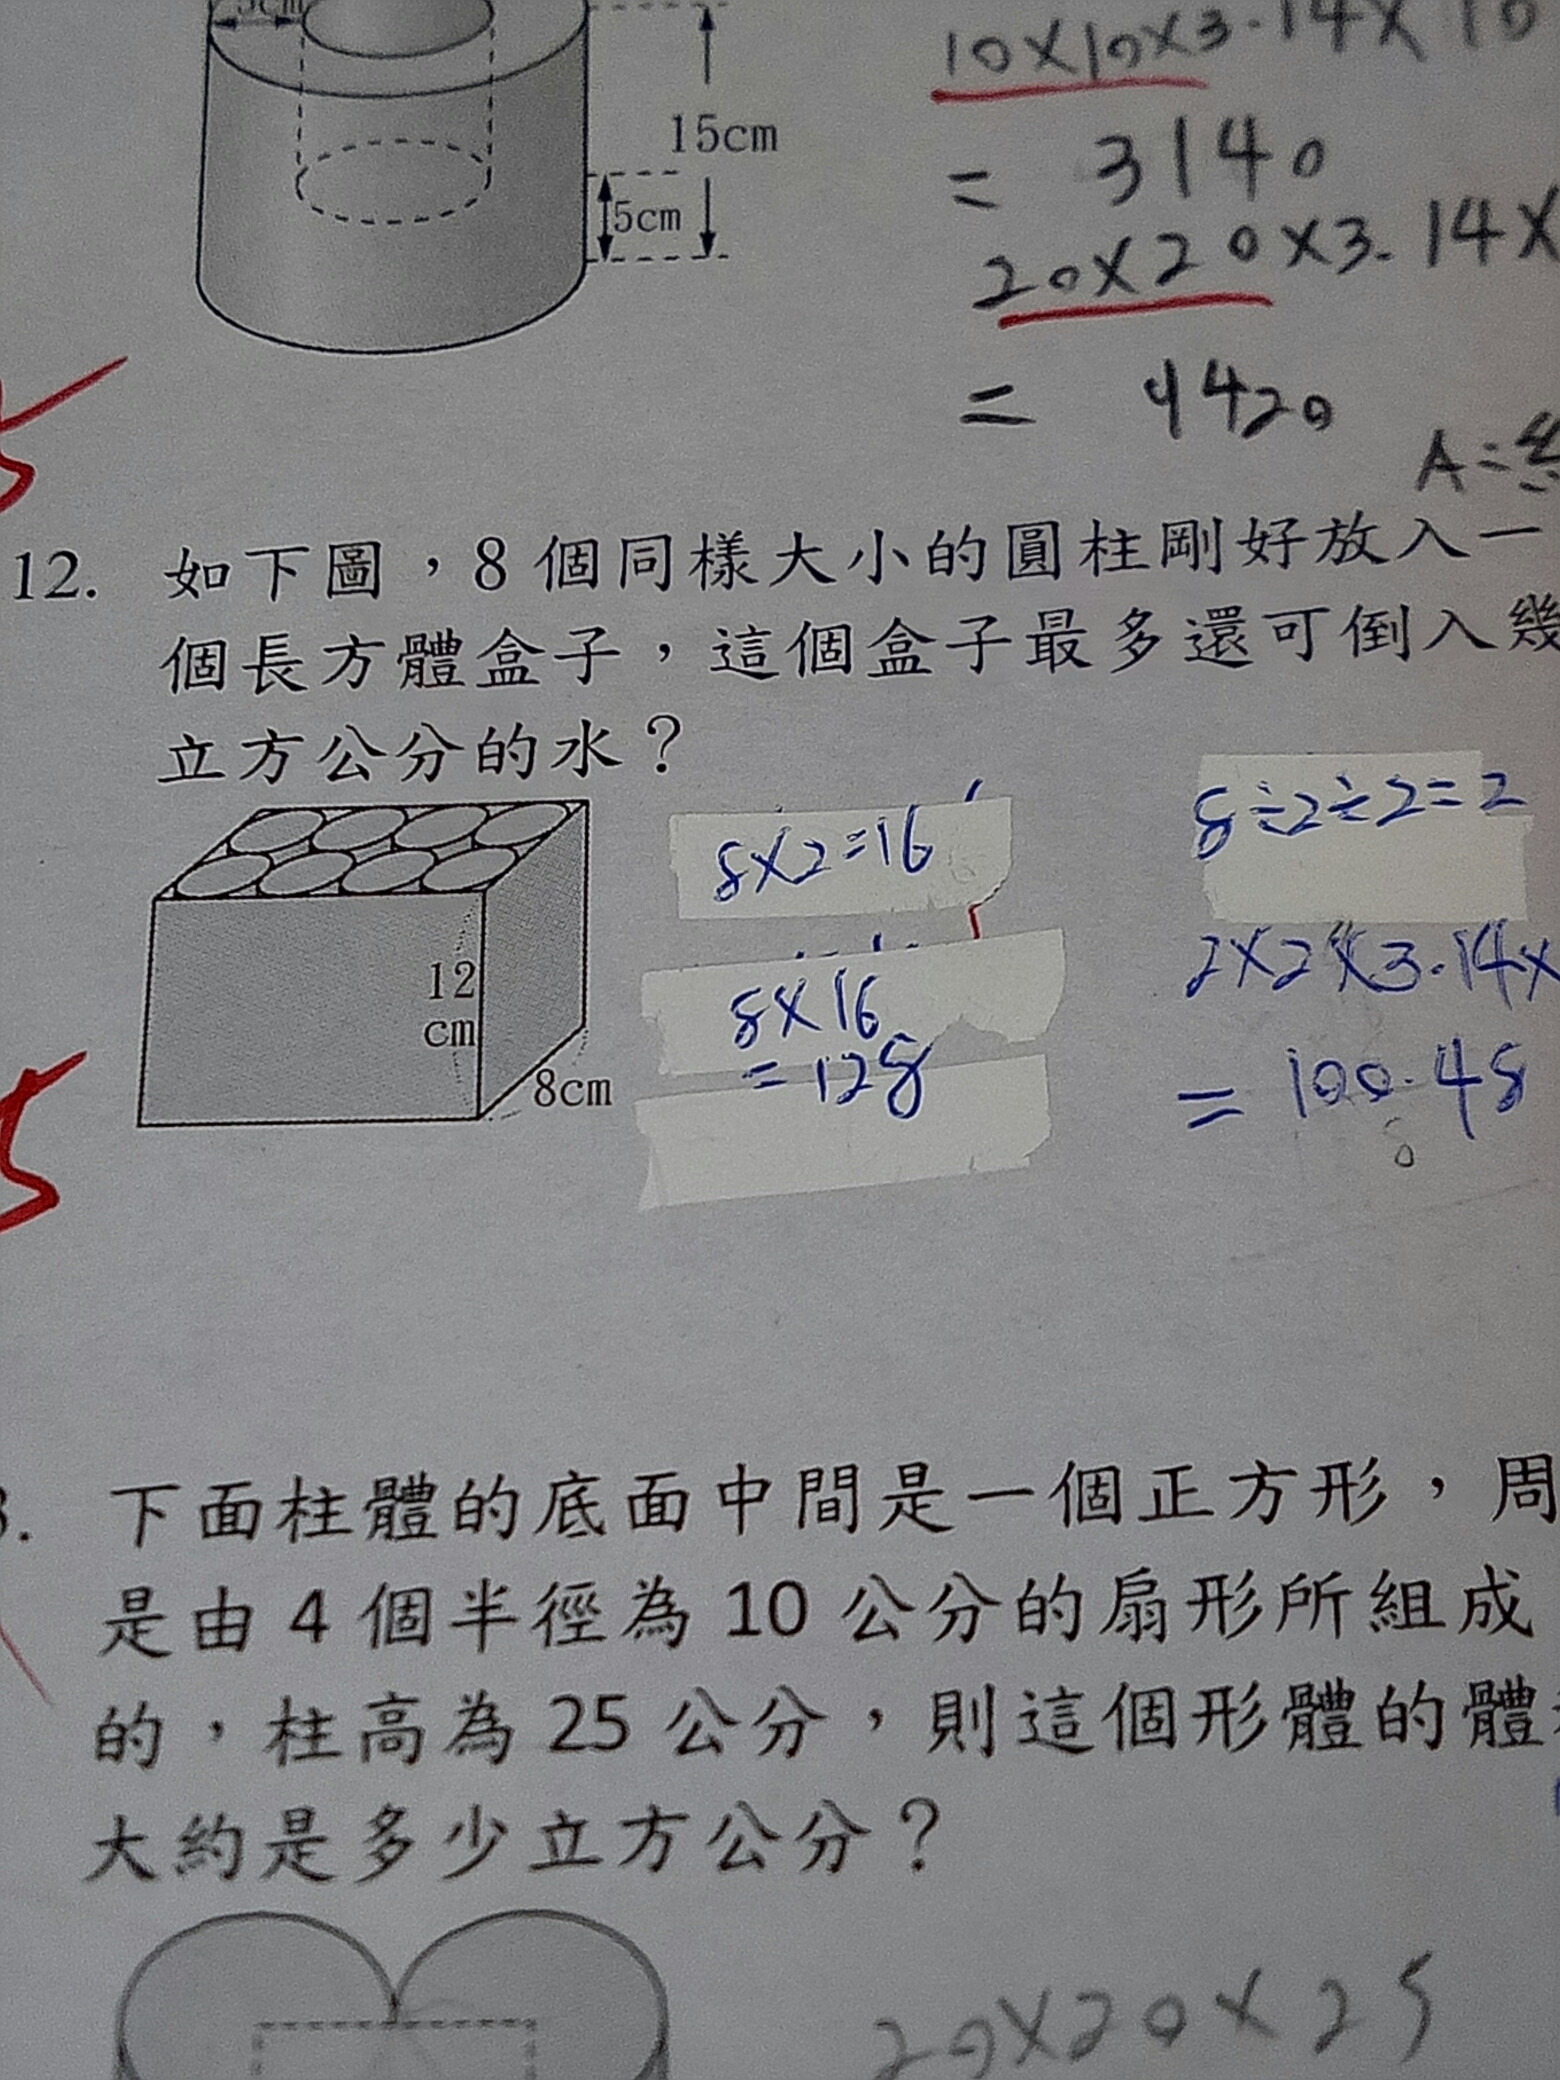 5cm
10×10×3.14×10
15cm
= 3140
5cm
20×20×3.14×
= 9420
A=
12. 如下圖，8個同樣大小的圓柱剛好放入一
個長方體盒子，這個盒子最多還可倒入幾
立方公分的水？
8×2=16
8÷2÷2=2
8×16
=128
2×2×3.14×
=100.48
8
12
cm
8cm
5
下面柱體的底面中間是一個正方形，周
是由4個半徑為10公分的扇形所組成
的，柱高為25公分，則這個形體的體
大約是多少立方公分？
20×20×25